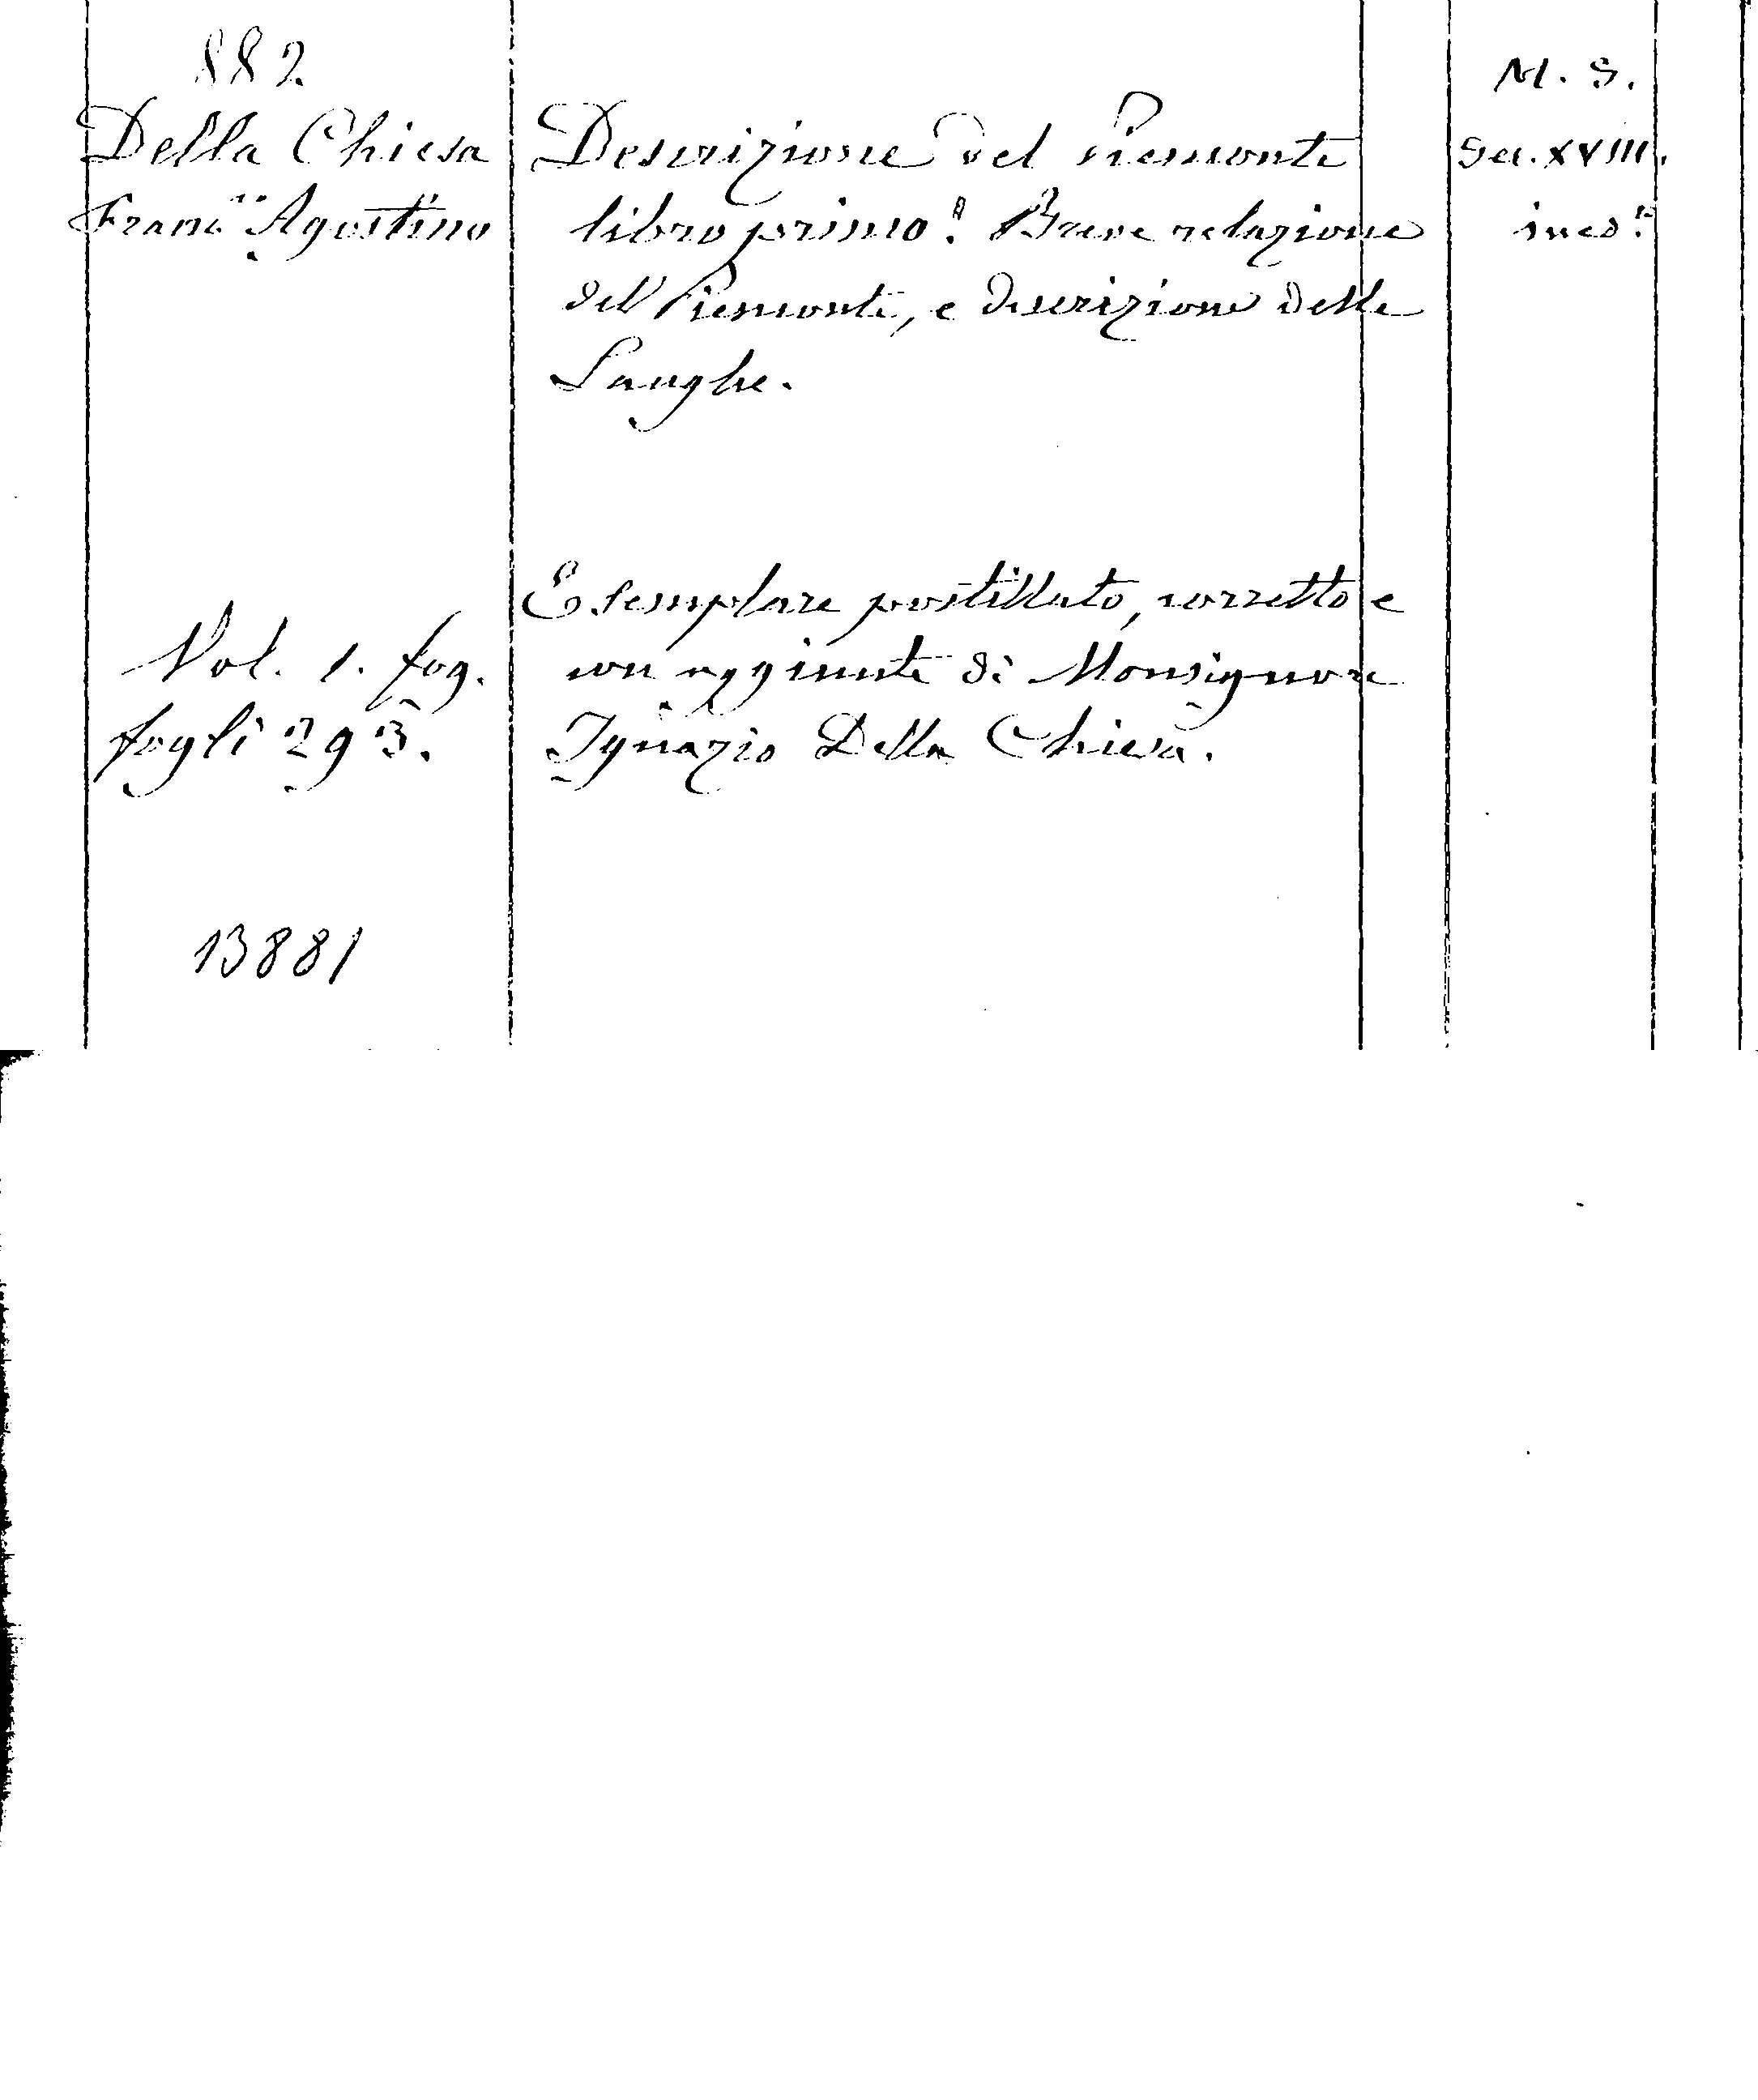 882.
Della Chiesa
Franc.co Agostino
Vol. 1. fog.
fogli 293.
13881
Descrizione del Piemonte
libro primo: Breve relazione
del Piemonte, e descrizione delle
Langhe.
Esemplare postillato, corretto e
con aggiunte di Monsignore
Ignazio Della Chiesa.
M. S.
Sec. XVIII.
ined.o